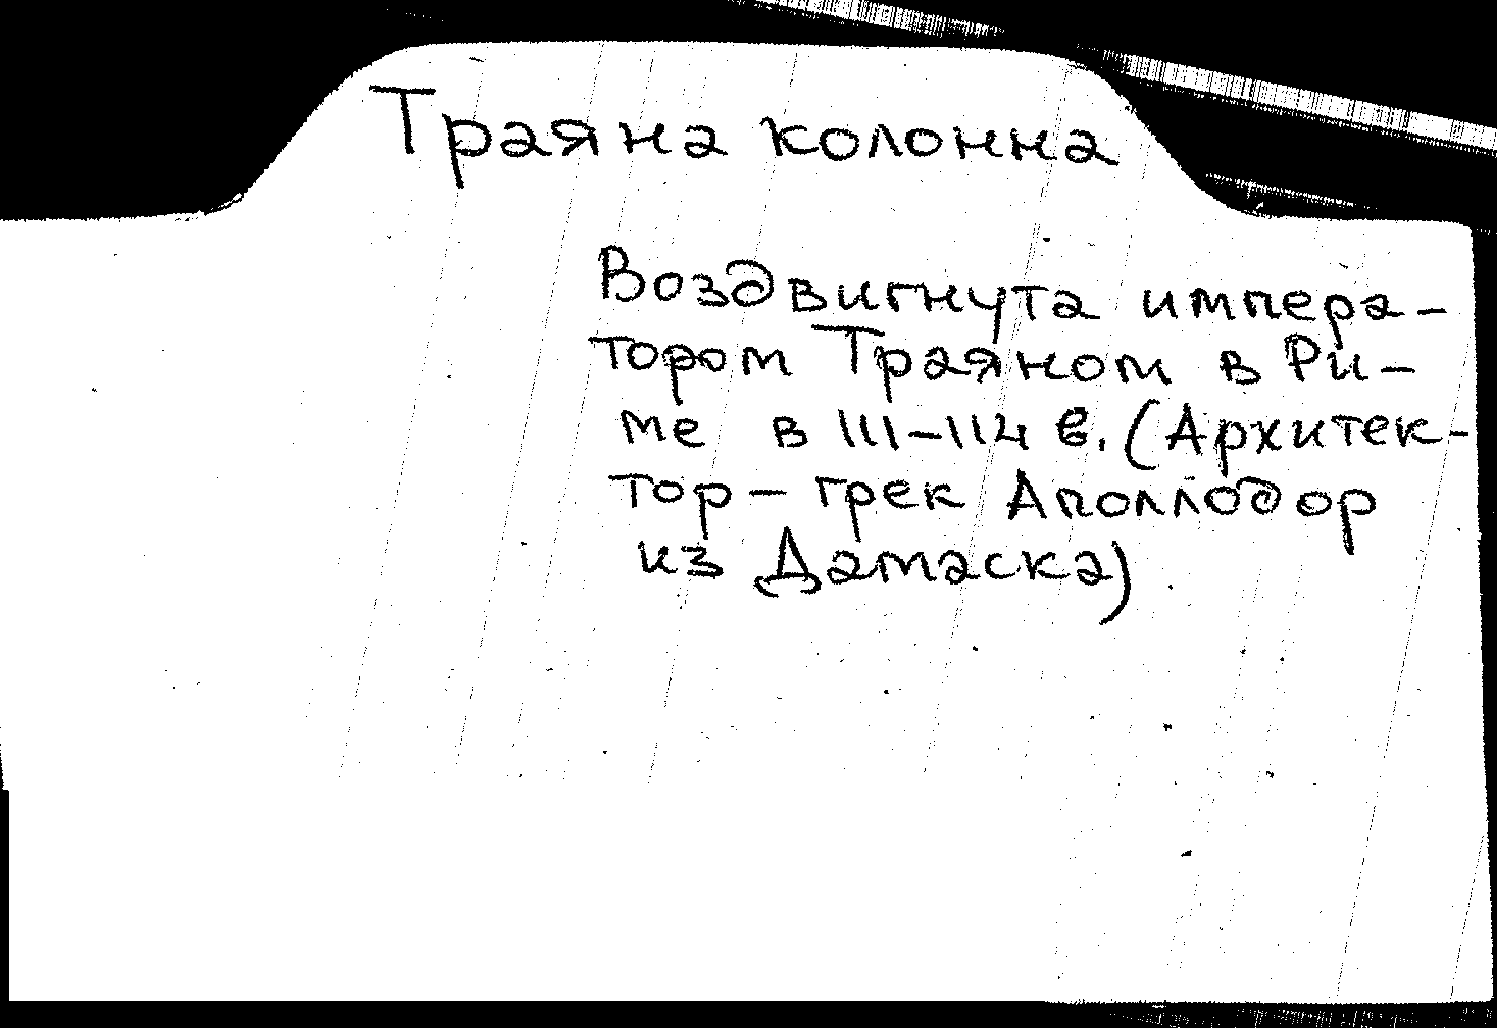 Траяна колонна
Воздвигнута импера-
тором Траяном в Ри-
ме в 111-114 в. (Архитек-
тор - грек Аполлодор
из Дамаска)